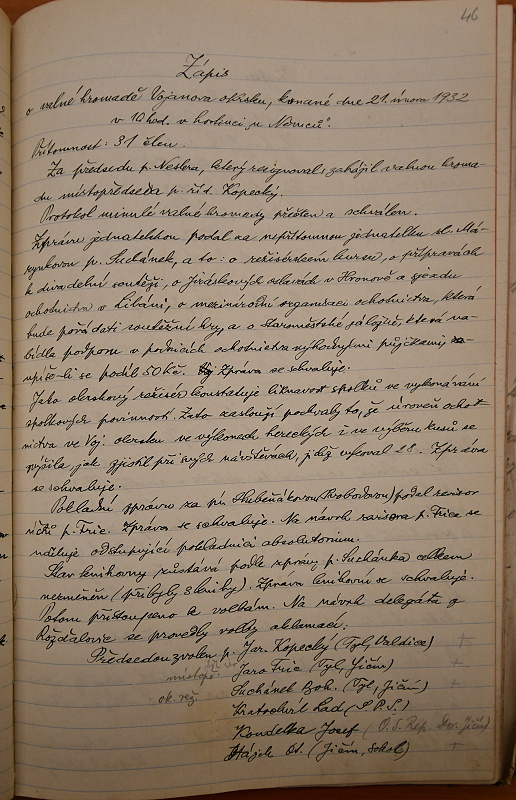 46
Zápis
o valné hromadě Vojanova okrsku, konané dne 21. února 1932
v 10 hod. v hostinci „u Němců".
Přítomnost: 31 člen.
Za předsedu p. Neslera, který resignoval zahájil valnou hroma-
du místopředseda p. říd. Kopecký.
Protokol minulé valné hromady přečten a schválen.
Zprávu jednatelskou podal za nepřítomnou jednatelku sl. Má-
p. Suchánek, a to: o režisérském kursu, o přípravách
k divadelní soutěži, o Jiráskových oslavách v Hronově a sjezdu
ochotnictva v Libáni, o mezinárodní organisaci ochotnictva, která
bude pořádati soutěžní hry, a o Staroměstské záložně, která na-
bídla podporu v podnicích ochotnictva výhodnými půjčkami, za-
upíše-li se podíl 50 Kč. Zpráva se schvaluje.
Jako okrskový režisér konstatuje liknavost spolků ve vykonávání
spolkových povinností. Zato zasluhují pochvaly to, že úroveň ochot
nictva ve Voj. okrsku ve výkonech hereckých i ve výběru kusů se
zvýšila, jak zjistil při svých návštěvách, jichž vykonal 28. Zpráva
se schvaluje.
Pokladní zprávu za pí. (Svobodovou) podal revisor
účtů p. Fric. Zpráva se schvaluje. Na návrh revisora p. Frice se
uděluje odstupující pokladnici absolutorium.
Stav knihovny zůstává podle zprávy p. Suchánka celkem
nezměněn (přibyly 3 knihy). Zpráva knihovní se schvaluje.
Potom přistoupeno k volbám. Na návrh delegáta z
Rožďalovic se provedly volby aklamací:
Předsedou zvolen p. Jar. Kopecký (Tyl, Valdice) +
místopř. Jaro Fric (Tyl, Jičín) +
ok. rež. Suchánek Boh. (Tyl, Jičín) +
Kratochvíl Lad. (S.P.S.)
Koudelka Josef (O. S. Rep. Dor. Jičín)
Hájek Ot. (Jičín, Sokol) +